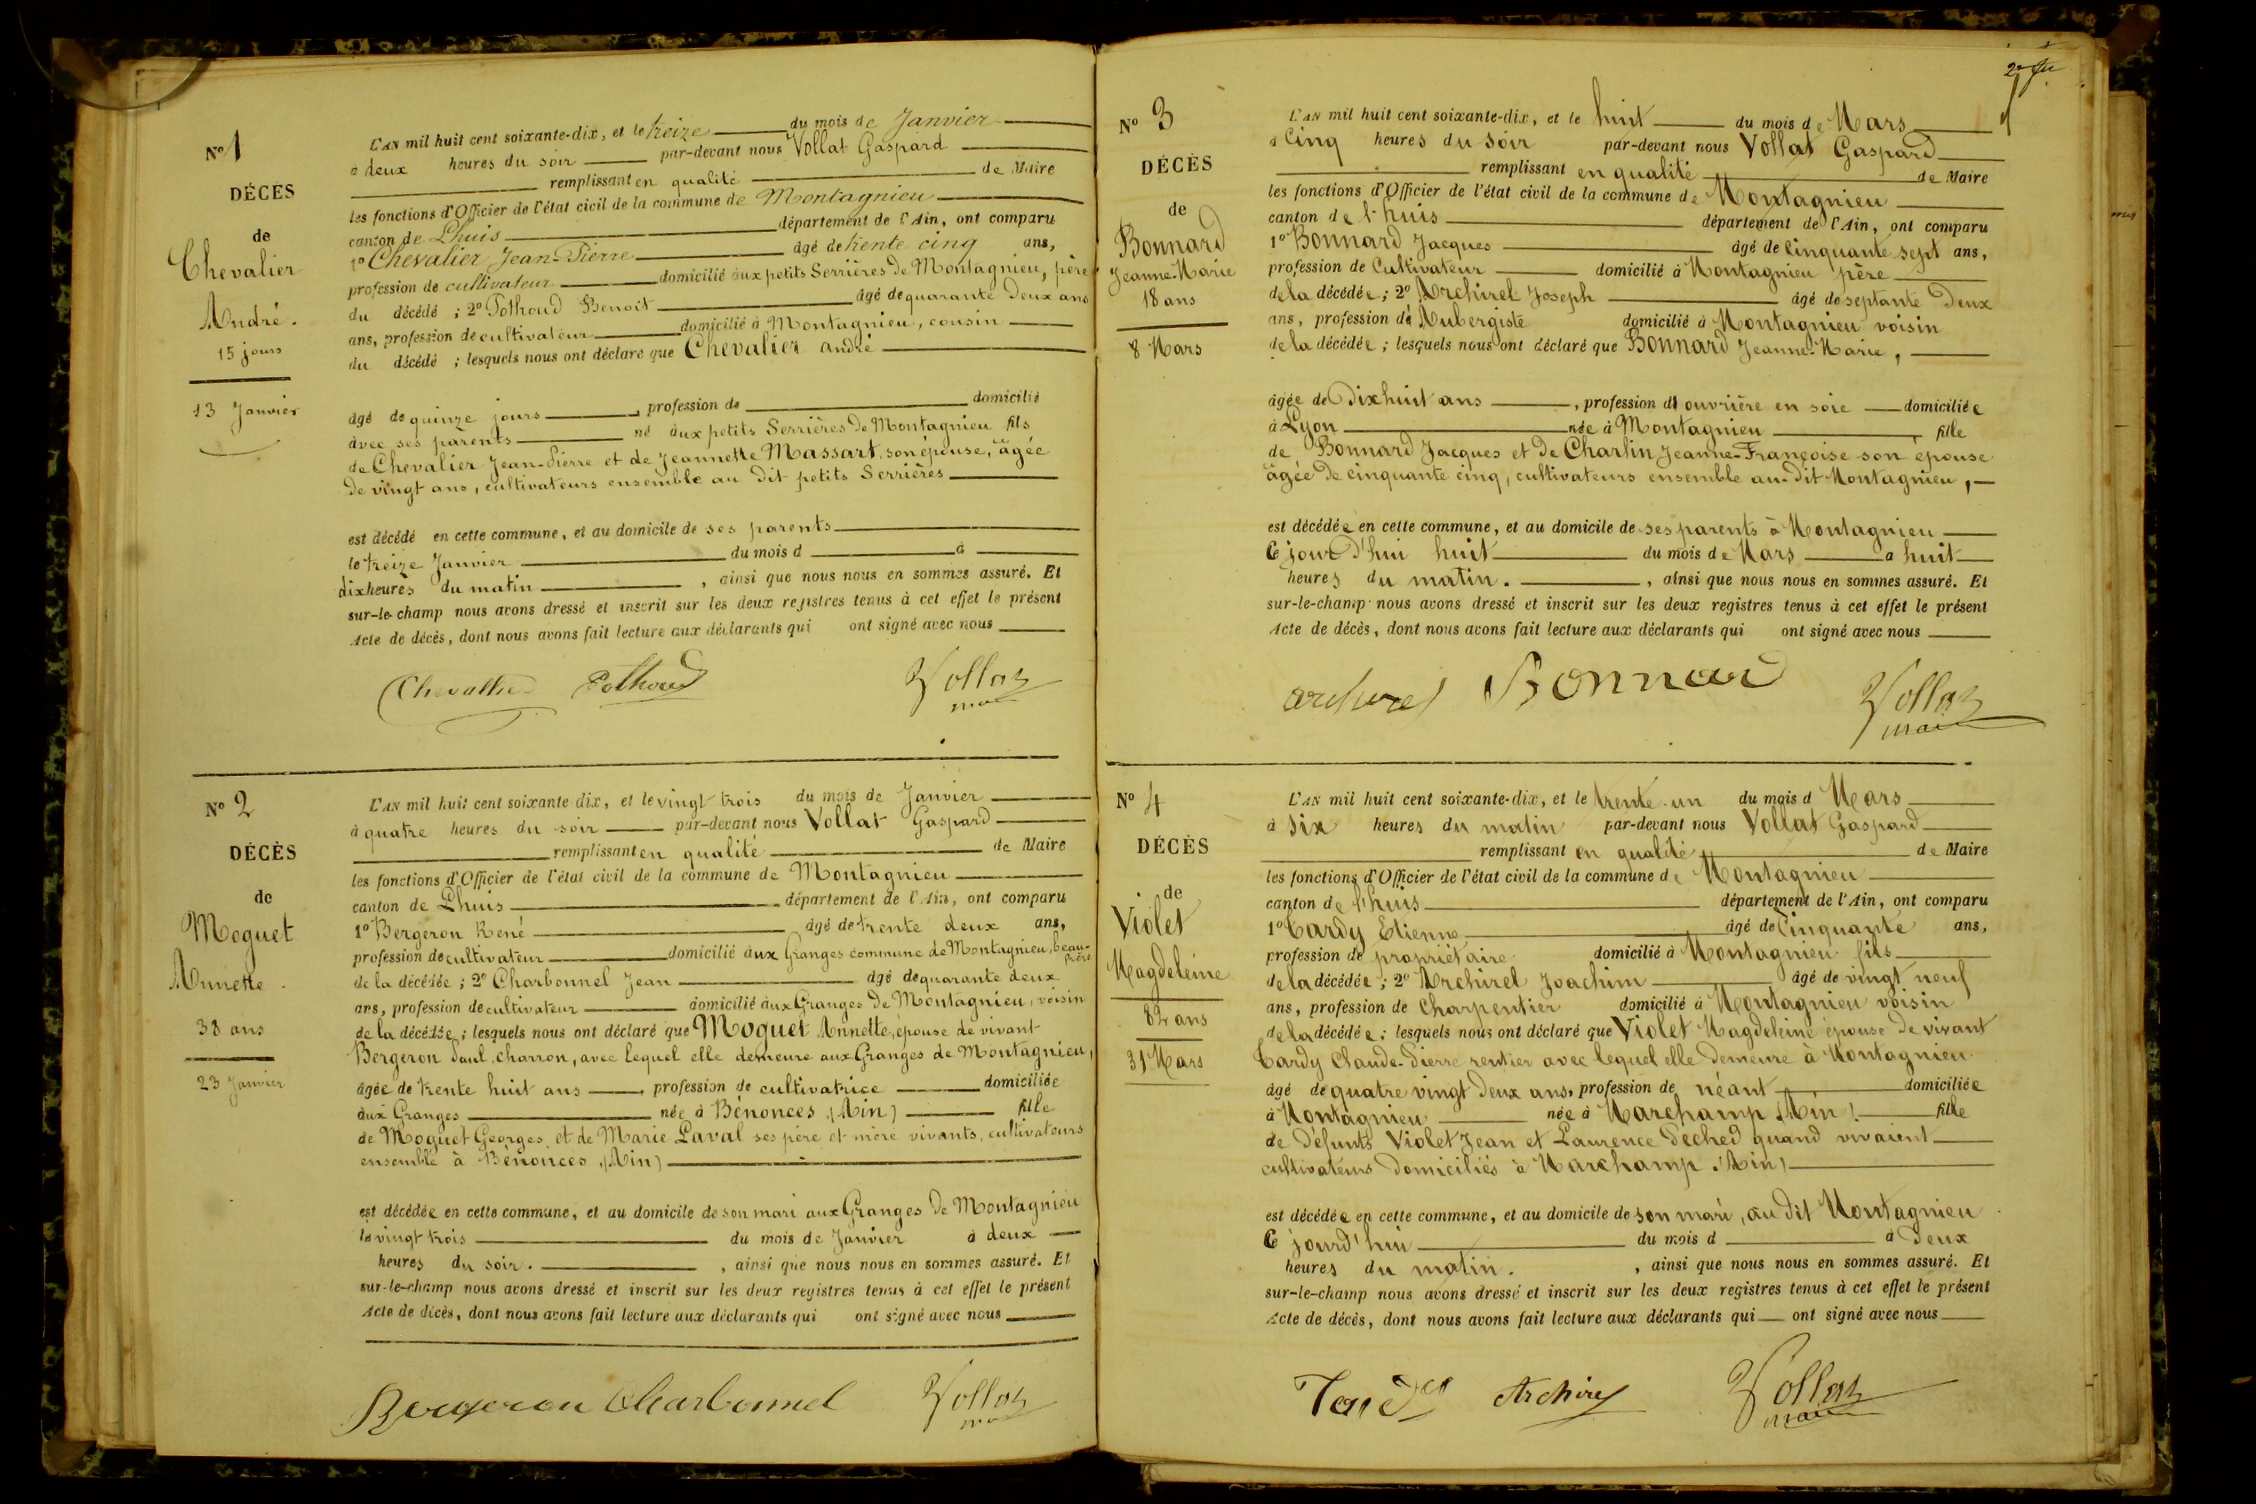 N° 1
DÉCÈS
de
Chevalier
André.
15 jours
13 Janvier
L'AN mil huit cent soixante-dix, et le treize du mois de Janvier
à deux heures du soir par-devant nous Vollat Gaspard
remplissant en qualité de Maire
les fonctions d'Officier de l'état civil de la commune de Montagnieu
canton de Lhuis département de l'Ain, ont comparu
1° Chevalier Jean-Pierre âgé de trente cinq ans,
profession de cultivateur domicilié aux petits Serrières de Montagnieu, père
du décédé ; 2° Pothoud Benoit âgé de quarante deux ans
ans, profession de cultivateur domicilié à Montagnieu, cousin
du décédé ; lesquels nous ont déclaré que Chevalier André
âgé de quinze jours, profession de domicilié
avec ses parents né aux petits Serrières de Montagnieu fils
de Chevalier Jean-Pierre et de Jeannette Massart, son épouse, âgée
de vingt ans, cultivateurs ensemble au dit petits Serrières
est décédé en cette commune, et au domicile de ses parents
le treize Janvier du mois d à
dix heures du matin, ainsi que nous nous en sommes assuré. Et
sur-le-champ nous avons dressé et inscrit sur les deux registres tenus à cet effet le présent
Acte de décès, dont nous avons fait lecture aux déclarants qui ont signé avec nous
Chevallier Pothoud Vollat
N° 2
DÉCÈS
de
Moguet
Annette.
38 ans
23 Janvier
L'AN mil huit cent soixante dix, et le vingt trois du mois de Janvier
à quatre heures du soir par-devant nous Vollat Gaspard
remplissant en qualité de Maire
les fonctions d'Officier de l'état civil de la commune de Montagnieu
canton de Lhuis département de l'Ain, ont comparu
1° Bergeron René âgé de trente deux ans,
profession de cultivateur domicilié aux Granges commune de Montagnieu, beau-frère
de la décédée ; 2° Charbonnel Jean âgé de quarante deux
ans, profession de cultivateur domicilié aux Granges de Montagnieu, voisin
de la décédée ; lesquels nous ont déclaré que Moguet Annette, épouse de vivant
Bergeron Paul, charron, avec lequel elle demeure aux Granges de Montagnieu,
âgée de trente huit ans, profession de cultivatrice domiciliée
aux Granges née à Bénonces (Ain) fille
de Moguet Georges, et de Marie Laval ses père et mère vivants, cultivateurs
ensemble à Bénonces (Ain)
est décédée en cette commune, et au domicile de son mari aux Granges de Montagnieu
le vingt trois du mois de Janvier à deux
heures du soir., ainsi que nous nous en sommes assuré. Et
sur-le-champ nous avons dressé et inscrit sur les deux registres tenus à cet effet le présent
Acte de décès, dont nous avons fait lecture aux déclarants qui ont signé avec nous
Bergeron Charbonnel Vollat
N° 3
DÉCÈS
de
Bonnard
Jeanne-Marie
18 ans
8 Mars
L'AN mil huit cent soixante-dix, et le huit du mois de Mars
à Cinq heures du soir par-devant nous Vollat Gaspard
remplissant en qualité de Maire
les fonctions d'Officier de l'état civil de la commune de Montagnieu
canton de l'huis département de l'Ain, ont comparu
1° Bonnard Jacques âgé de cinquante sept ans,
profession de Cultivateur domicilié à Montagnieu père
de la décédée ; 2° Archirel Joseph âgé de septante deux
ans, profession de Aubergiste domicilié à Montagnieu voisin
de la décédée ; lesquels nous ont déclaré que Bonnard Jeanne-Marie,
âgée de Dixhuit ans, profession d' ouvrière en soie domiciliée
à Lyon née à Montagnieu, fille
de Bonnard Jacques et de Charlin Jeanne-Françoise son épouse
âgée de cinquante cinq, cultivateurs ensemble au-dit Montagnieu,
est décédée en cette commune, et au domicile de ses parents à Montagnieu
Ce jour d'hui huit du mois de Mars à huit
heures du matin., ainsi que nous nous en sommes assuré. Et
sur-le-champ nous avons dressé et inscrit sur les deux registres tenus à cet effet le présent
Acte de décès, dont nous avons fait lecture aux déclarants qui ont signé avec nous
archirel Bonnard Vollat maire
N° 4
DÉCÈS
de
Violet
Magdeleine
82 ans
31 Mars
L'AN mil huit cent soixante-dix, et le trente-un du mois d Mars
à six heures du matin par-devant nous Vollat Gaspard
remplissant en qualité de Maire
les fonctions d'Officier de l'état civil de la commune de Montagnieu
canton de l'huis département de l'Ain, ont comparu
1° Tardy Etienne âgé de Cinquante ans,
profession de propriétaire domicilié à Montagnieu fils
de la décédée ; 2° Archirel Joachim âgé de vingt neuf
ans, profession de charpentier domicilié à Montagnieu voisin
de la décédée ; lesquels nous ont déclaré que Violet Magdeleine épouse de vivant
Tardy Claude-Pierre rentier avec lequel elle demeure à Montagnieu
âgé de quatre vingt deux ans, profession de néant domiciliée
à Montagnieu née à Marchamp (Ain) fille
de Défunts Violet Jean et Laurence Peched quand vivaient
cultivateurs domiciliés à Marchamp (Ain)
est décédée en cette commune, et au domicile de son mari, au dit Montagnieu
Ce jourd'hui du mois d à Deux
heures du matin., ainsi que nous nous en sommes assuré. Et
sur-le-champ nous avons dressé et inscrit sur les deux registres tenus à cet effet le présent
Acte de décès, dont nous avons fait lecture aux déclarants qui ont signé avec nous
Tardy Archirel Vollat maire